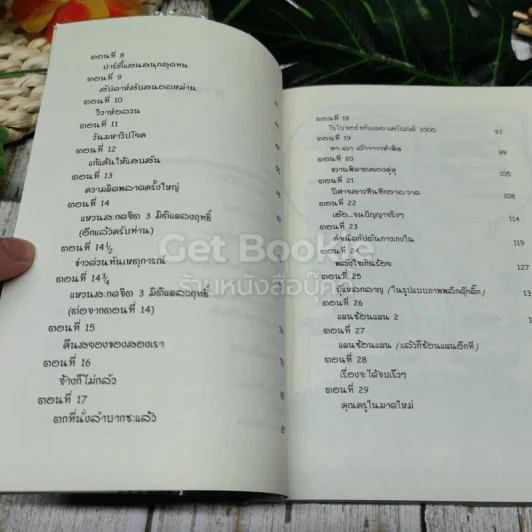 ตอนที่ 8
ปาร์ตี้แสนสนุกสุดทน
ตอนที่ 9
สัปดาห์สับสนอลหม่าน
ตอนที่ 10
วิวาห์อลวน
ตอนที่ 11
วันมหาวิปโยค
ตอนที่ 12
แก้แค้นให้แสบสัน
ตอนที่ 13
ความผิดพลาดครั้งใหญ่
ตอนที่ 14
แหวนสะกดจิต 3 มิติแผลงฤทธิ์
(อีกแล้วครับท่าน)
ตอนที่ 14 1/2
ข่าวด่วนทันเหตุการณ์
ตอนที่ 14 3/4
แหวนสะกดจิต 3 มิติแผลงฤทธิ์
(ต่อจากตอนที่ 14)
ตอนที่ 15
คืนสยองของสองเรา
ตอนที่ 16
จ้างก็ไม่กลัว
ตอนที่ 17
ตกที่นั่งลำบากซะแล้ว
ตอนที่ 18
2000
93
ตอนที่ 19
99
ตอนที่ 20
105
ตอนที่ 21
108
ตอนที่ 22
114
ตอนที่ 23
กำเนิดกัปตันกางเกงใน
119
ตอนที่ 24
พลังใจเกินร้อย
127
ตอนที่ 25
(ในรูปแบบภาพพลิกดุ๊กดิ๊ก)
ตอนที่ 26
แผนซ้อนแผน 2
ตอนที่ 27
แผนซ้อนแผน (แล้วก็ซ้อนแผนอีกที)
ตอนที่ 28
เรื่องจะได้จบเร็วๆ
ตอนที่ 29
คุณครูในมาดใหม่
Get Bookie
ร้านหนังสือบุ๊คกี้